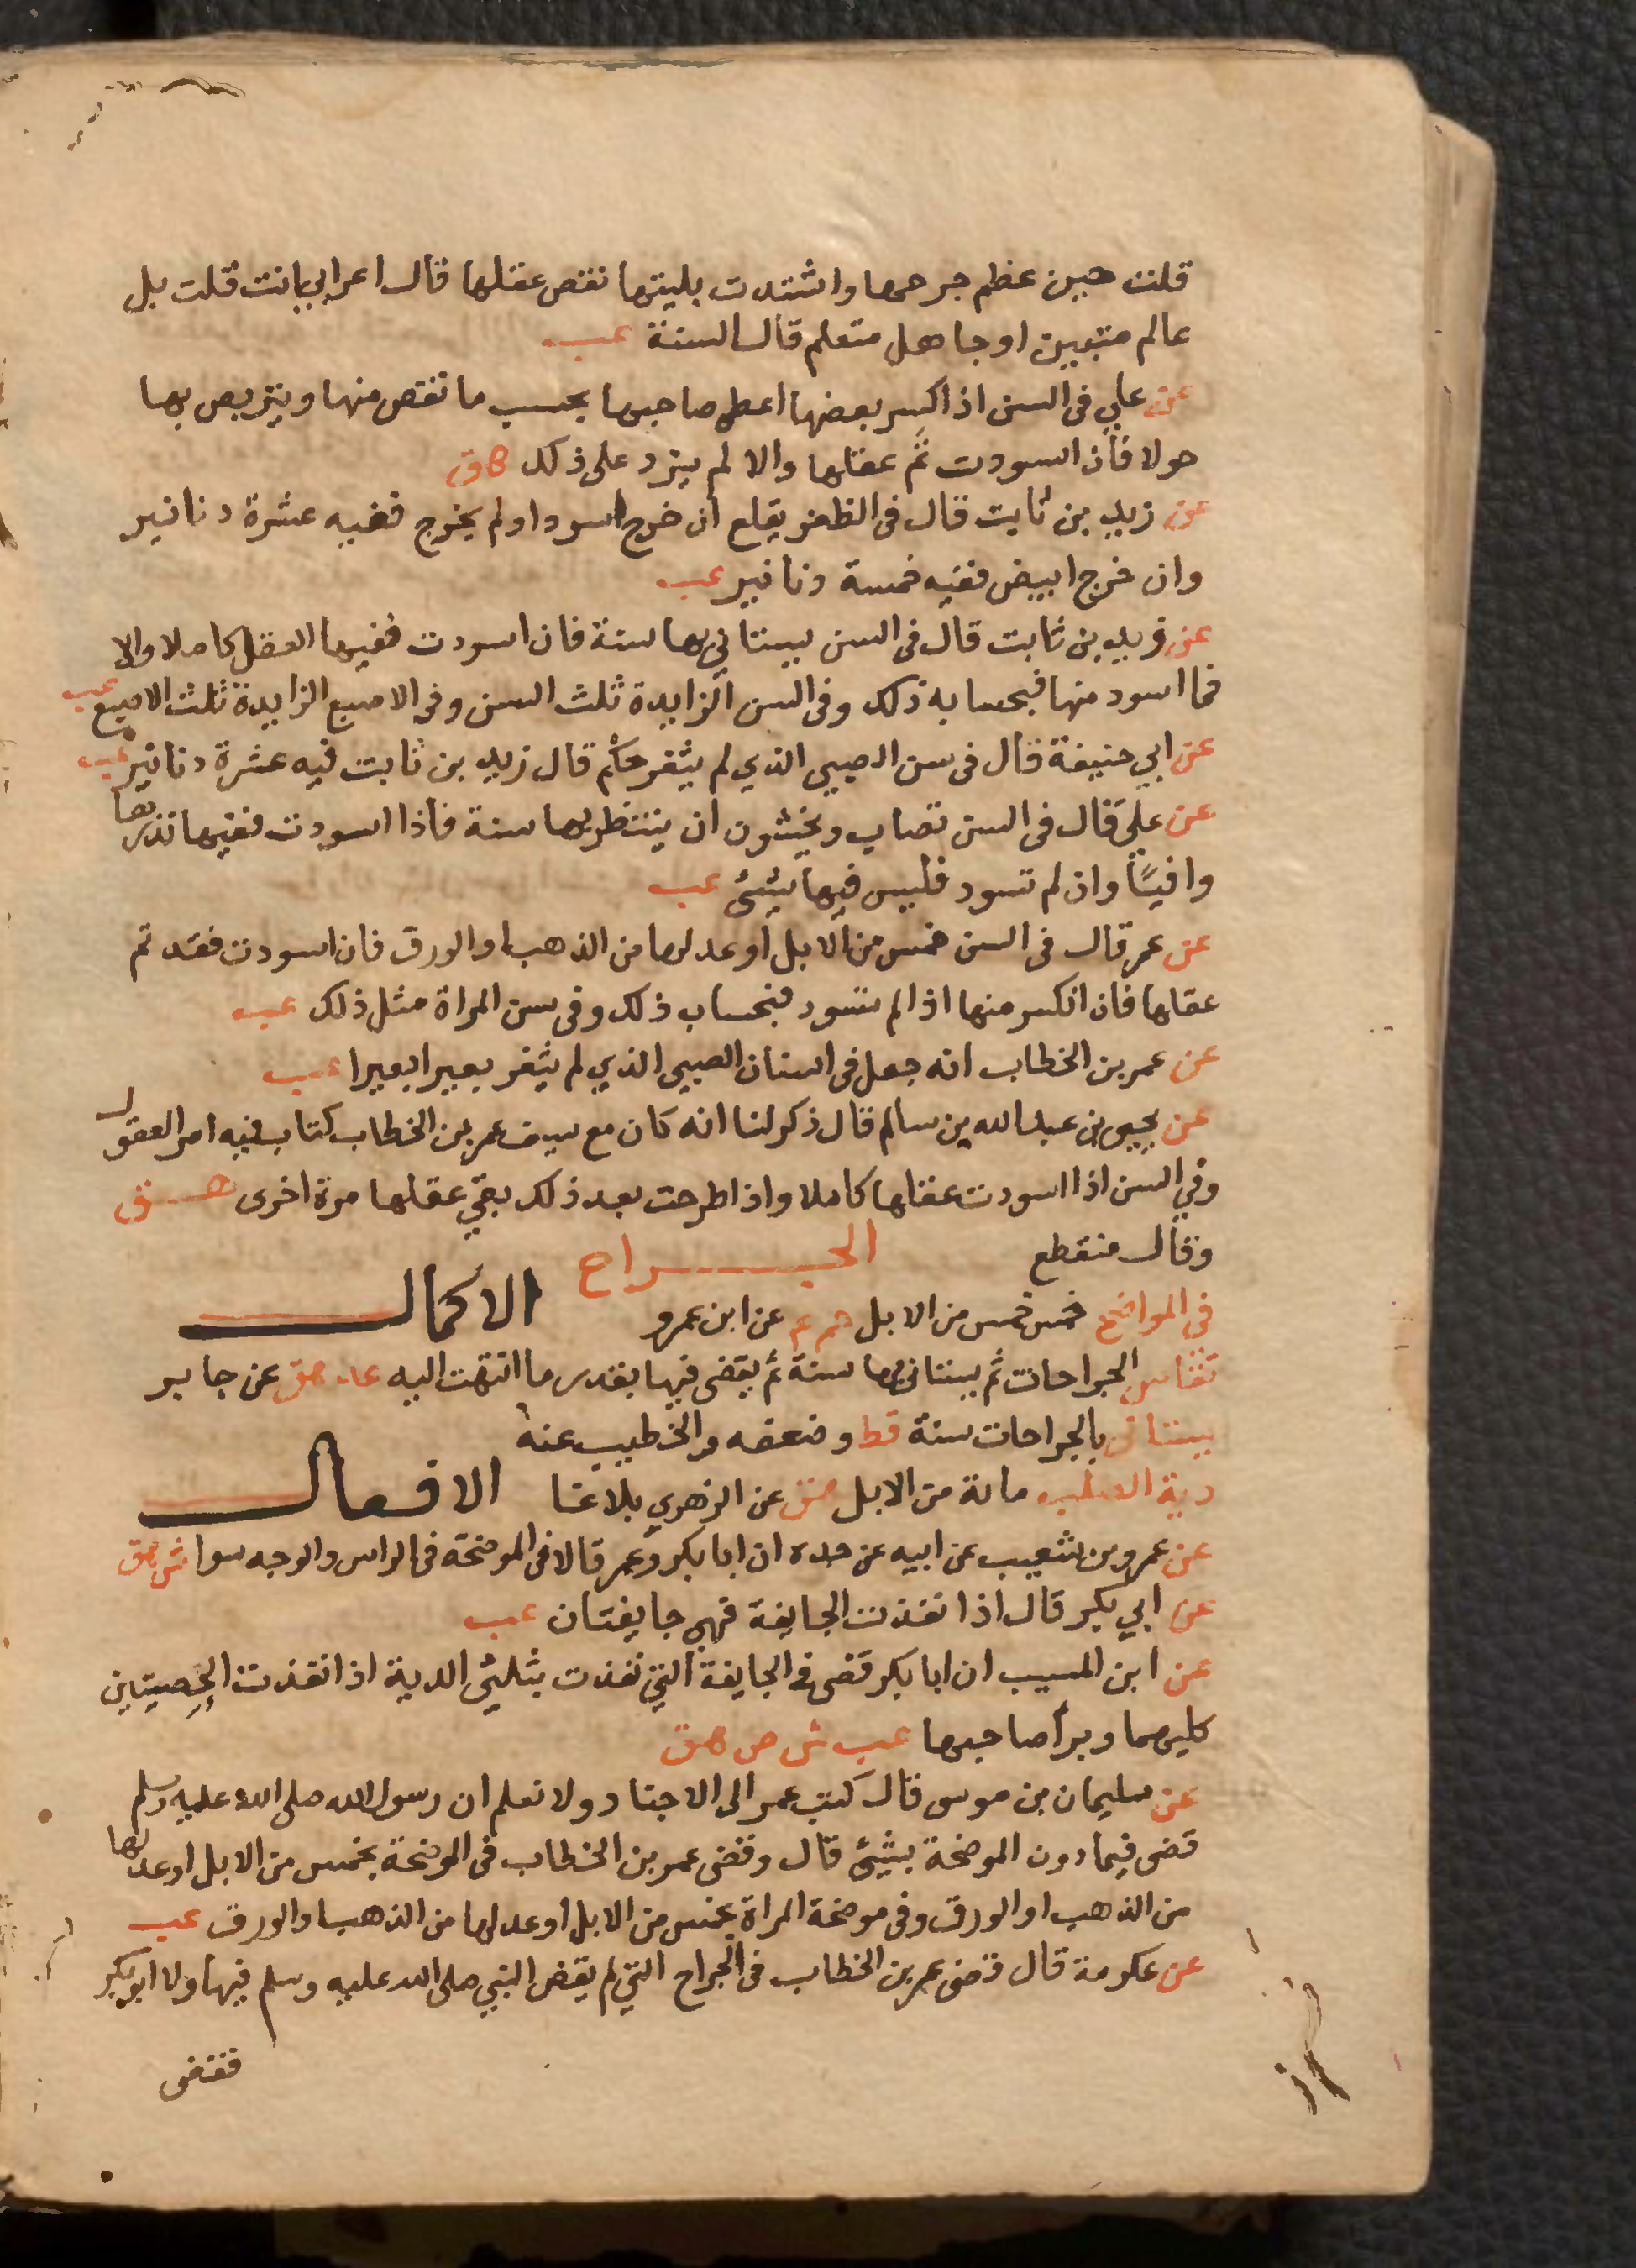 قلت حين عظم جرحها واشتدت بليتها نقص عقلها قال اعرابي انت قلت بل
عالم متبين او جاهل متعلم قال السنة عب
عن علي في السن اذا كسر بعضها اعطي صاحبها بحسب ما نقص منها ويتربص بها
حولا فان اسودت ثم عقلها والا لم يزد على ذلك هق
عن زيد بن ثابت قال في الظفر يقلع ان خرج اسود او لم يخرج ففيه عشرة دنانير
وان خرج ابيض ففيه خمسة دنانير عب
عن زيد بن ثابت قال في السن يستاني بها سنة فان اسودت ففيها العقل كاملا والا
فما اسود منها فبحسابه ذلك وفي السن الزايدة ثلث السن وفي الاصبع الزايدة ثلث الاصبع عب
عن ابي حنيفة قال في سن الصبي الذي لم يثغر حكم قال زيد بن ثابت فيه عشرة دنانير عب
عن علي قال في السن تصاب ويخشون ان ينتظر بها سنة فاذا اسودت ففيها نذرها
وافيًا وان لم تسود فليس فيها شئ عب
عن عمر قال في السن خمس من الابل او عدلها من الذهب او الورق فان اسودت فقد تم
عقلها فان انكسر منها اذا لم تسود فبحساب ذلك وفي سن المراة مثل ذلك عب
عن عمر بن الخطاب انه جعل في اسنان الصبي الذي لم يثغر بعيرا بعيرا عب
عن يحيى بن عبد الله بن سالم قال ذكر لنا انه كان مع سيف عمر بن الخطاب كتاب فيه امر العقول
وفي السن اذا اسودت عقلها كاملا واذا طرحت بعد ذلك بقي عقلها مرة اخرى هق
وقال منقطع الجراح
في المواضح خمس خمس من الابل حم عم عن ابن عمرو الاكمال
تقاس الجراحات ثم يستانى بها سنة ثم يقضى فيها بقدر ما انتهت اليه عد هق عن جابر
يستانى بالجراحات سنة قط وضعفه والخطيب عنه
دية الصلب ماية من الابل هق عن الزهري بلاغا الافعال
عن عمرو بن شعيب عن ابيه عن جده ان ابا بكر وعمر قالا في الموضحة في الراس والوجه سوا ش هق
عن ابي بكر قال اذا نفذت الجايفة فهي جايفتان عب
عن ابن المسيب ان ابا بكر قضى في الجايفة التي نفذت بثلثي الدية اذا نفذت الخصيتين
كليهما وبرأ صاحبها عب ش ص هق
عن سليمان بن موسى قال كتب عمر الى الاجناد ولا نعلم ان رسول الله صلى الله عليه وسلم
قضى فيما دون الموضحة بشئ قال وقضى عمر بن الخطاب في الموضحة بخمس من الابل او عدلها
من الذهب او الورق وفي موضحة المراة بخمس من الابل او عدلها من الذهب او الورق عب
عن عكرمة قال قضى عمر بن الخطاب في الجراح التي لم يقض النبي صلى الله عليه وسلم فيها ولا ابو بكر
فقضى